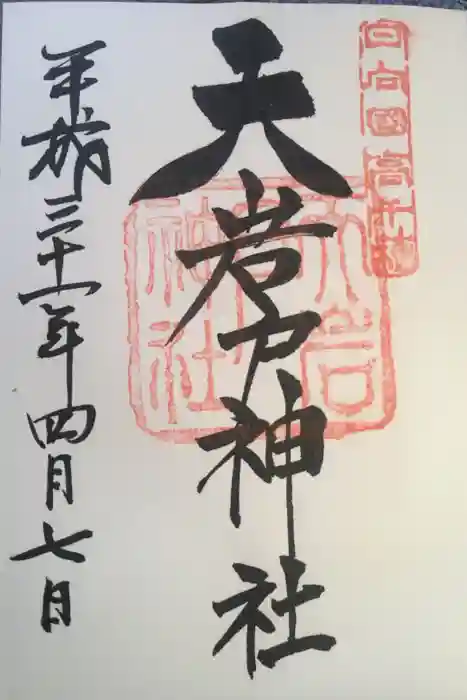 日向國高千穂
天岩戸神社
天岩戸神社
平成三十一年四月七日